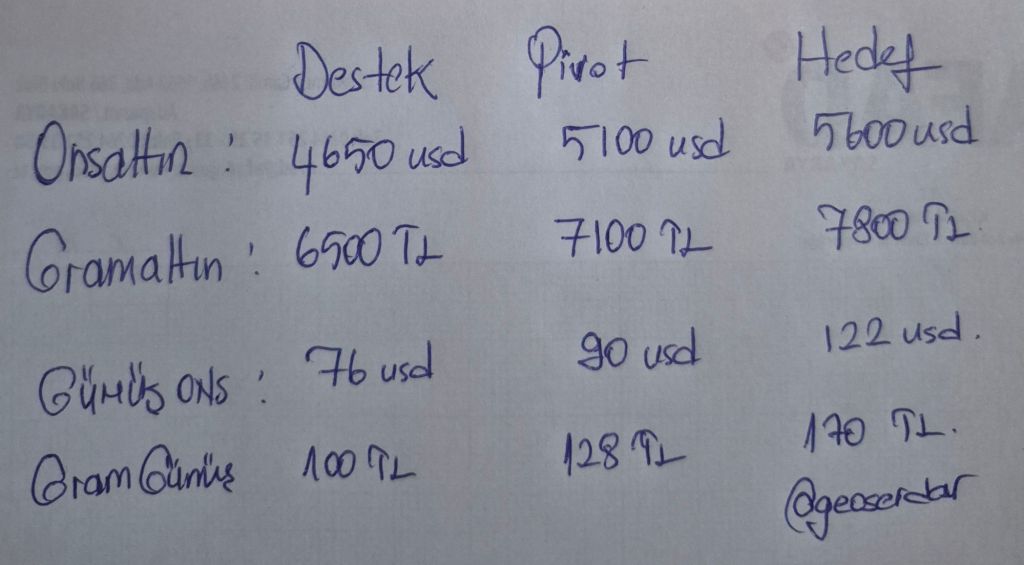 Destek Pivot Hedef
Onsaltın : 4650 usd 5100 usd 5600 usd
Gramaltın : 6500 TL 7100 TL 7800 TL
Gümüş ONS : 76 usd 90 usd 122 usd.
Gram Gümüş 100 TL 128 TL 170 TL.
@geoserdar